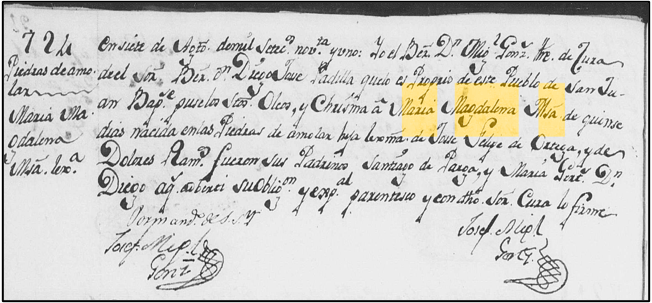 724
Piedras de amo-
lar
Maria Ma-
dalena
Msta. lexa.
en siete de Agto. de mil setecs. novta. y uno: Yo el Br. Dn. Migl. Gonz. the. de Cura
de el Sor. Br. Dn. Diego Jose Padilla que lo es Proprio de este Pueblo de San Ju-
an Bapte. puse los Stos. Oleos, y Chrisma â Maria Magdalena Msta. de quinse
dias nacida en las Piedras de amolar hija lexma. de Jose Felipe de Ortega, y de
Dolores Ramz. fueron sus Padrinos Santiago de Parga, y Maria Gertz. Dn.
Diego aq. adverti su obligon. y espal. parentesco y con dho. Sor. Cura lo firme
Josef. Migl.
Gonz.
Josef Migl.
Gonz.